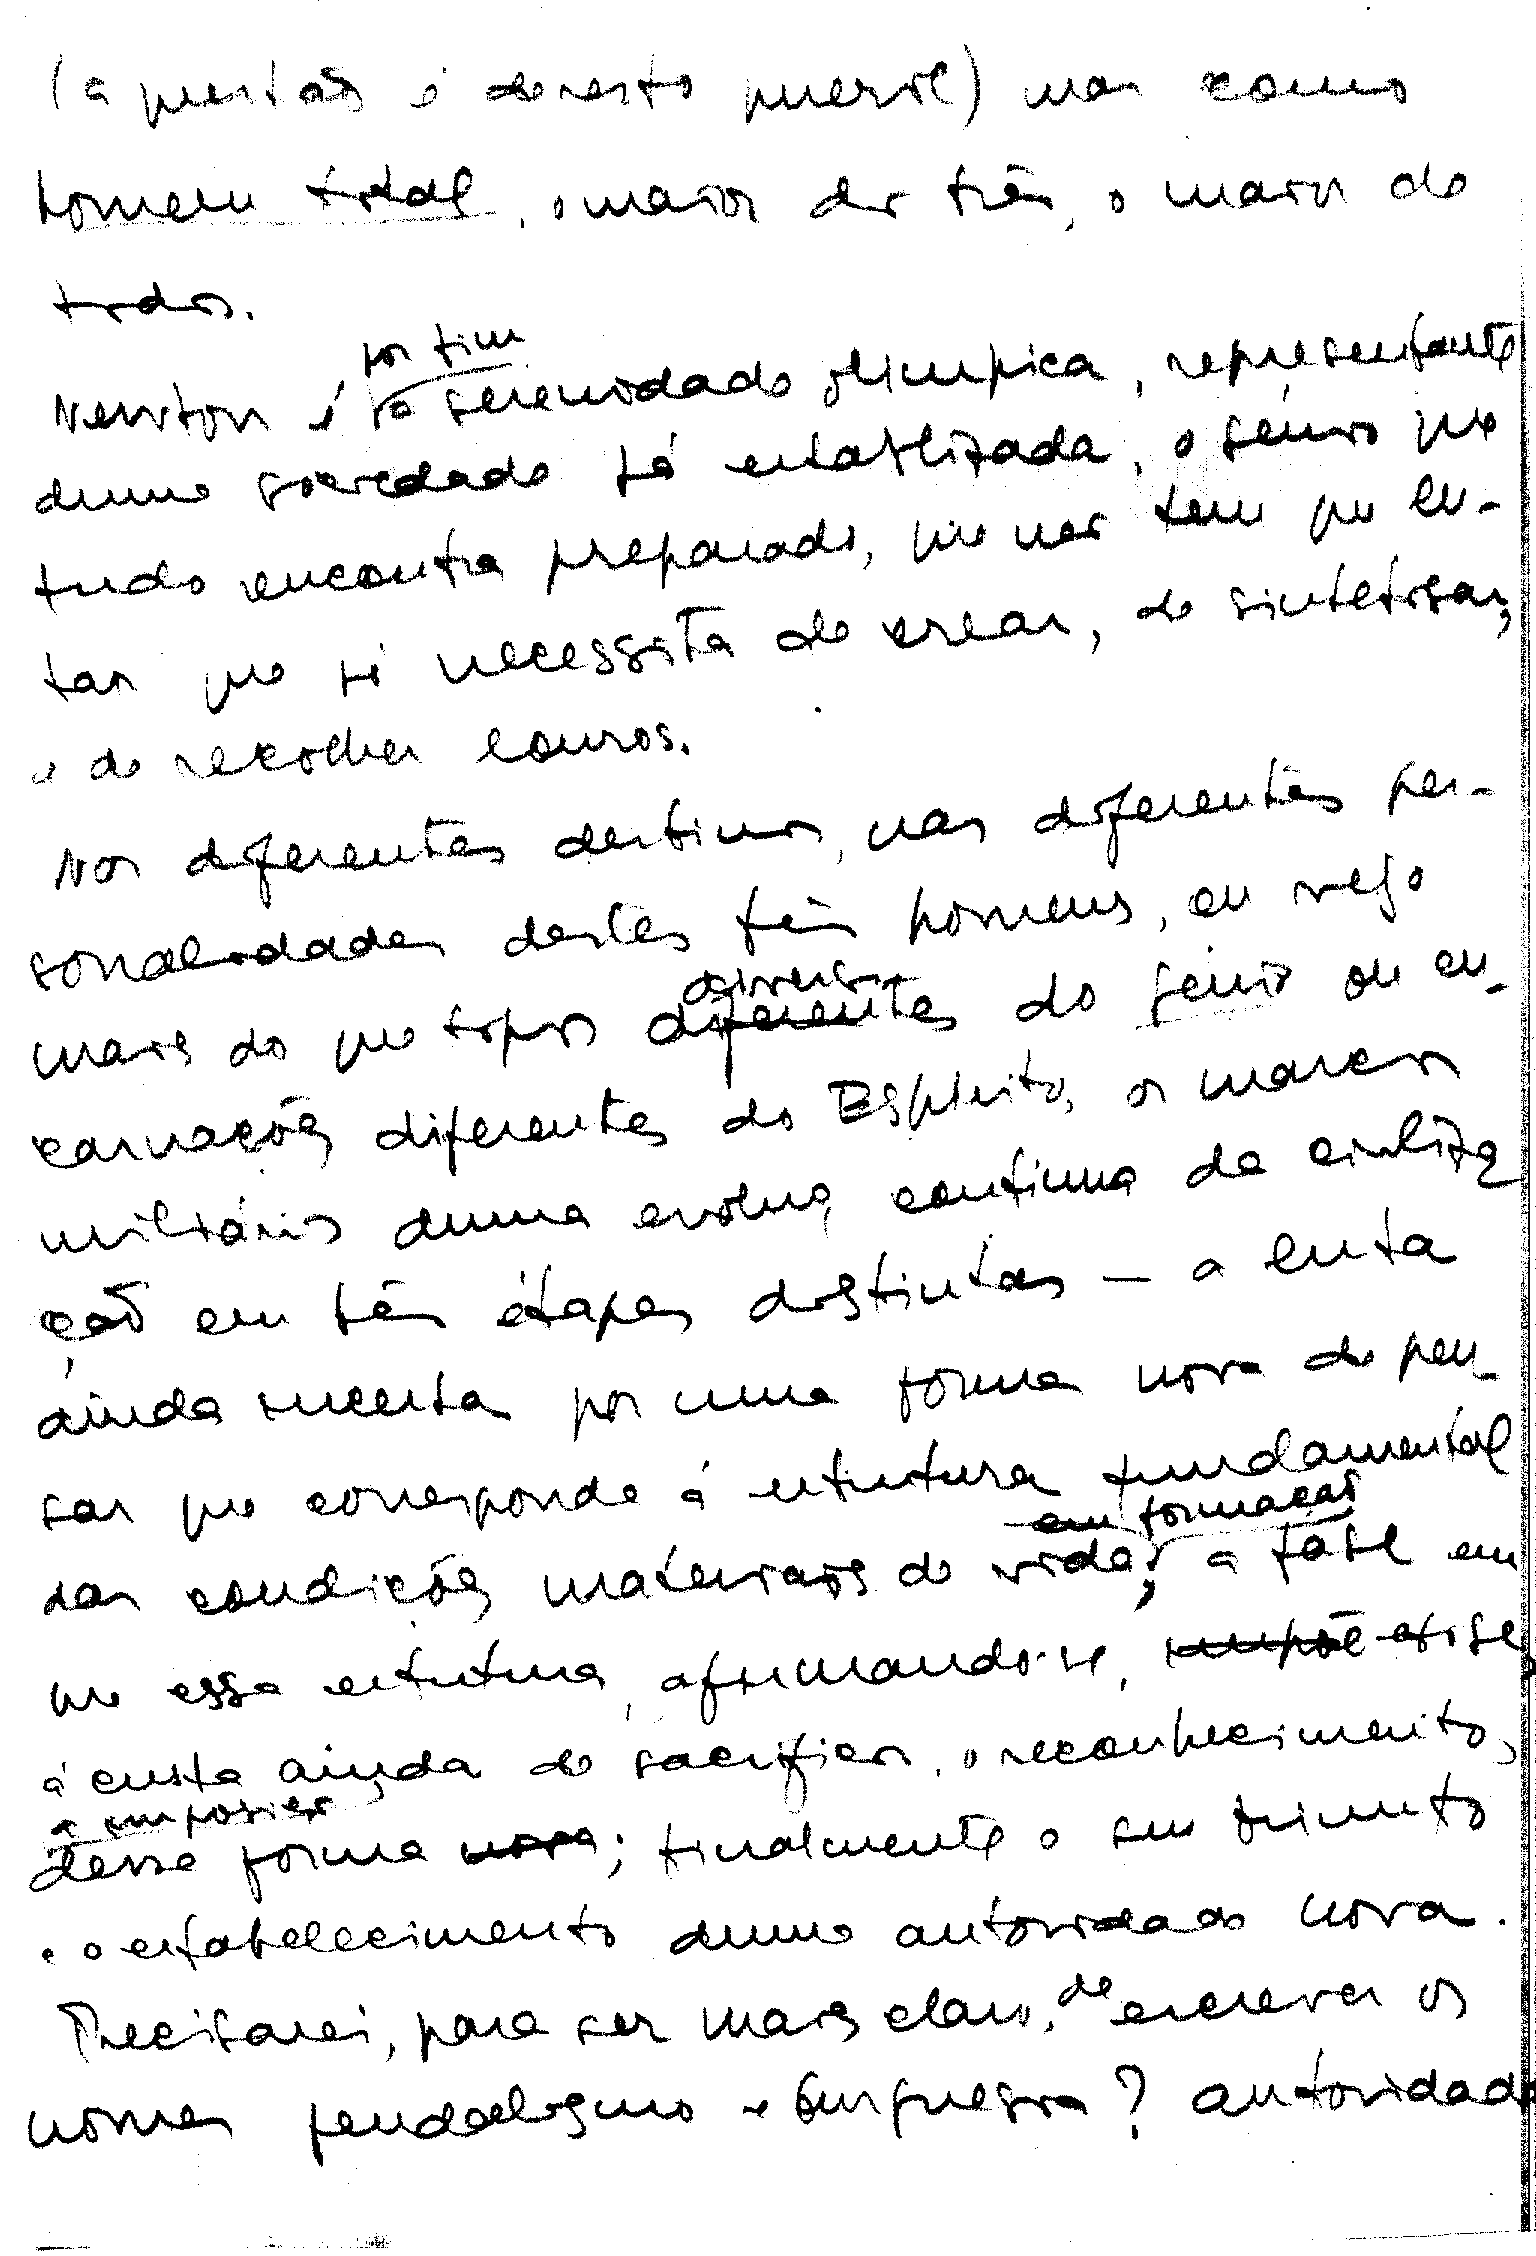 (a questão é de resto pueril) mas como
homem total, o maior dos três, o maior de
todos.
por fim
Newton é, a serenidade olímpica, representante
duma sociedade já estabilizada, o génio que
tudo encontra preparado, que não tem que lu-
tar que só necessita de crear, de sintetisar,
e de recolher louros.
Nos diferentes destinos, nas diferentes per-
sonalidades destes três homens, eu vejo
diversos
mais do que tipos diferentes do génio ou en-
carnações diferentes do Espírito, os marcos
miliários duma evolução contínua da civiliza
ção em três étapes distintas — a luta
ainda incerta por uma forma nova de pen-
sar que corresponde á estrutura fundamental
em formação
das condições materiais de vida; a fase em
que essa estrutura, afirmando-se, impõe
á custa ainda de sacrifícios, o reconhecimento,
a imposição
dessa forma nova; finalmente o seu triunfo
e o estabelecimento duma autoridade nova.
de
Precisarei, para ser mais claro, escrever os
nomes feudalismo e burguesia? autoridade